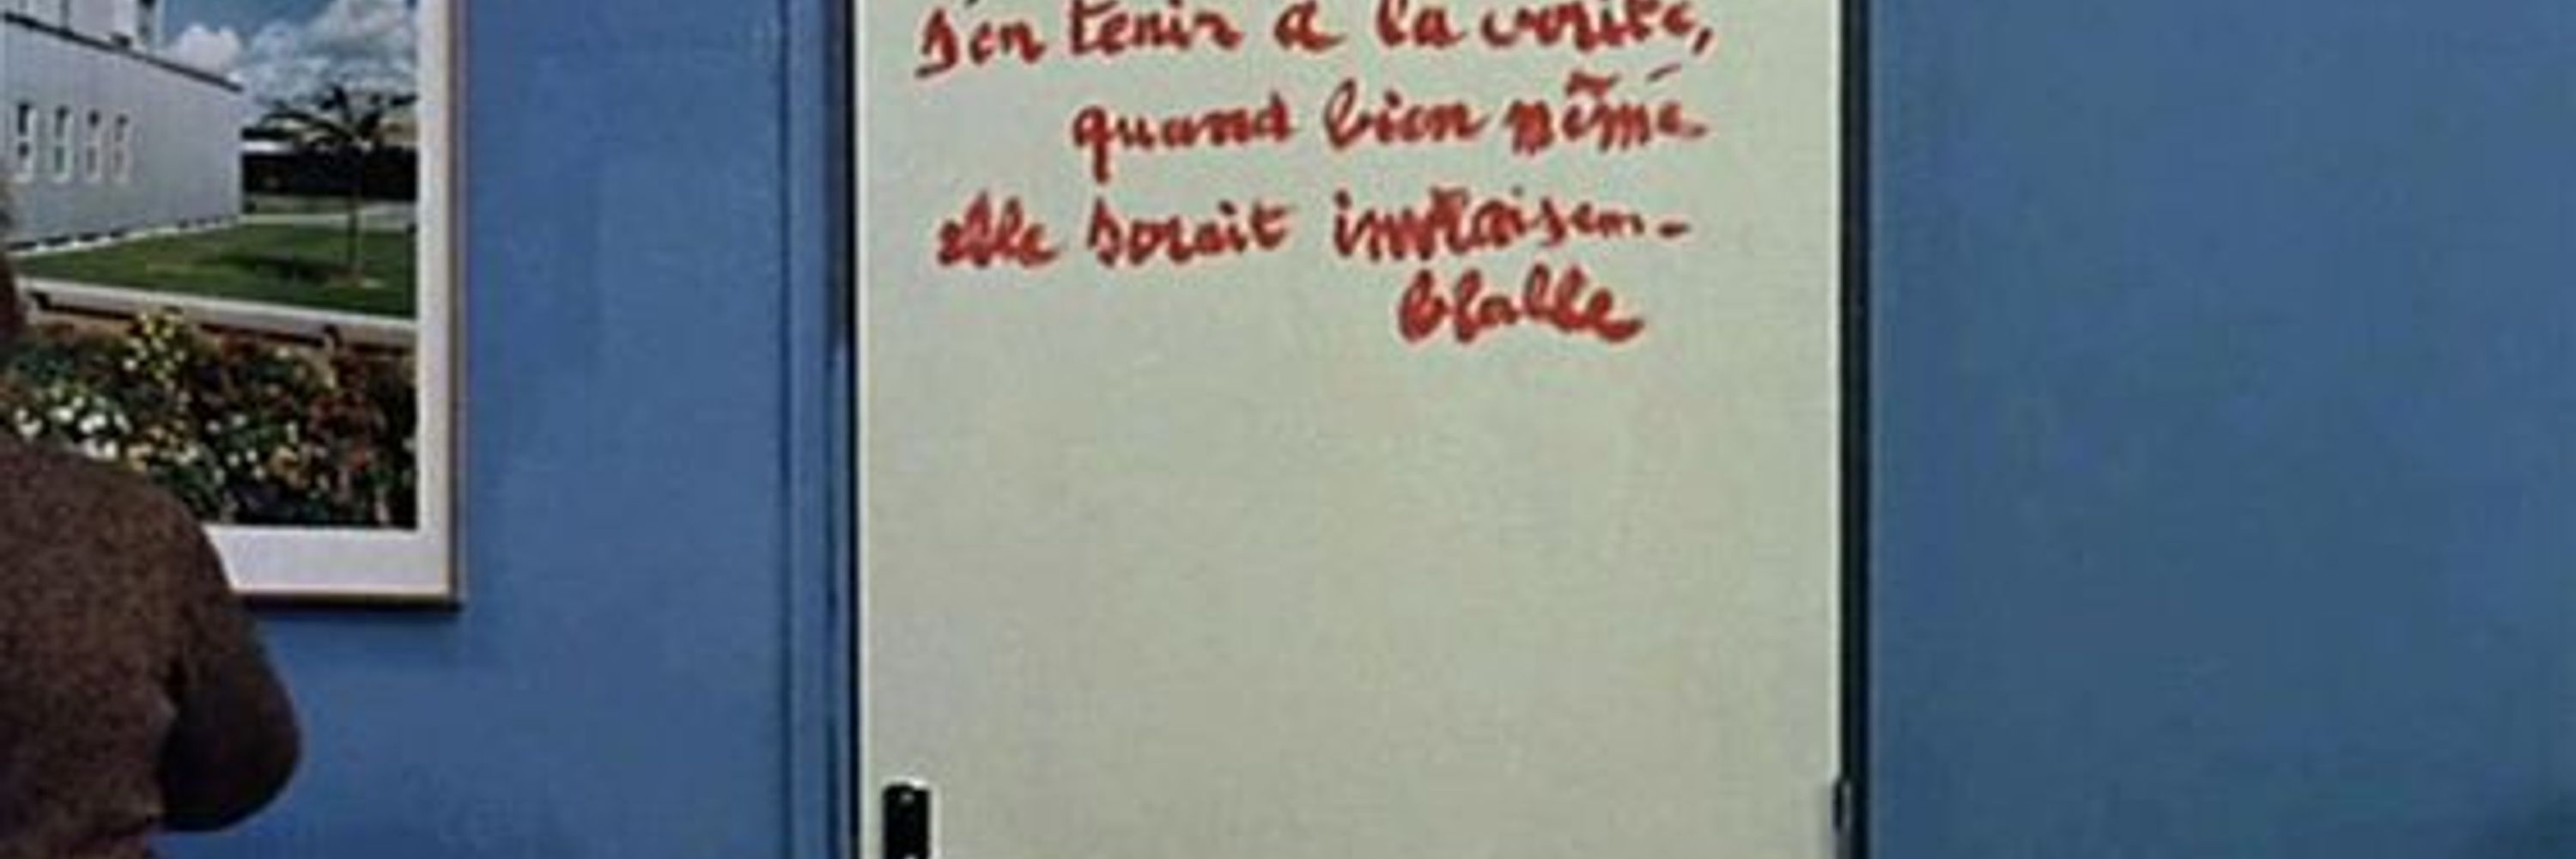 s'en tenir à la vérité,
quand bien même
elle serait invraisem-
blable